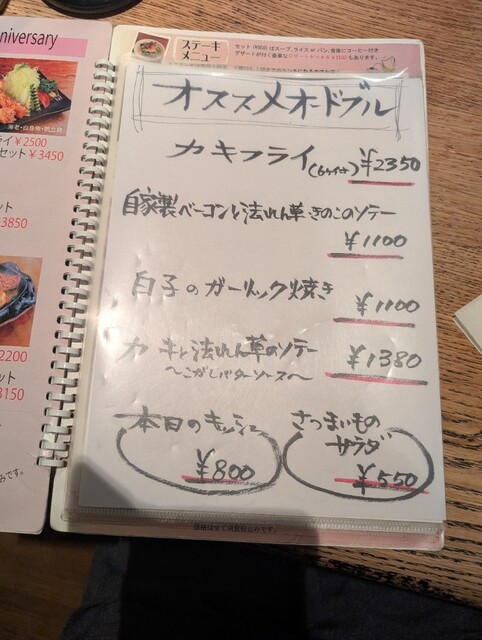 niversary
海老・白身魚・帆立貝
ライ ¥2500
セット ¥3450
ト
3850
2200
ット
3150
です。
ステーキ
メニュー
オススメオードブル
カキフライ(6ケ付) ¥2350
自家製ベーコンと法れん草きのこのソテー
¥1100
白子のガーリック焼き
¥1100
カキと法れん草のソテー
～こがしバターソース～
¥1380
本日のキッシュ
¥800
さつまいもの
サラダ
¥550
価格は全て消費税込みです。